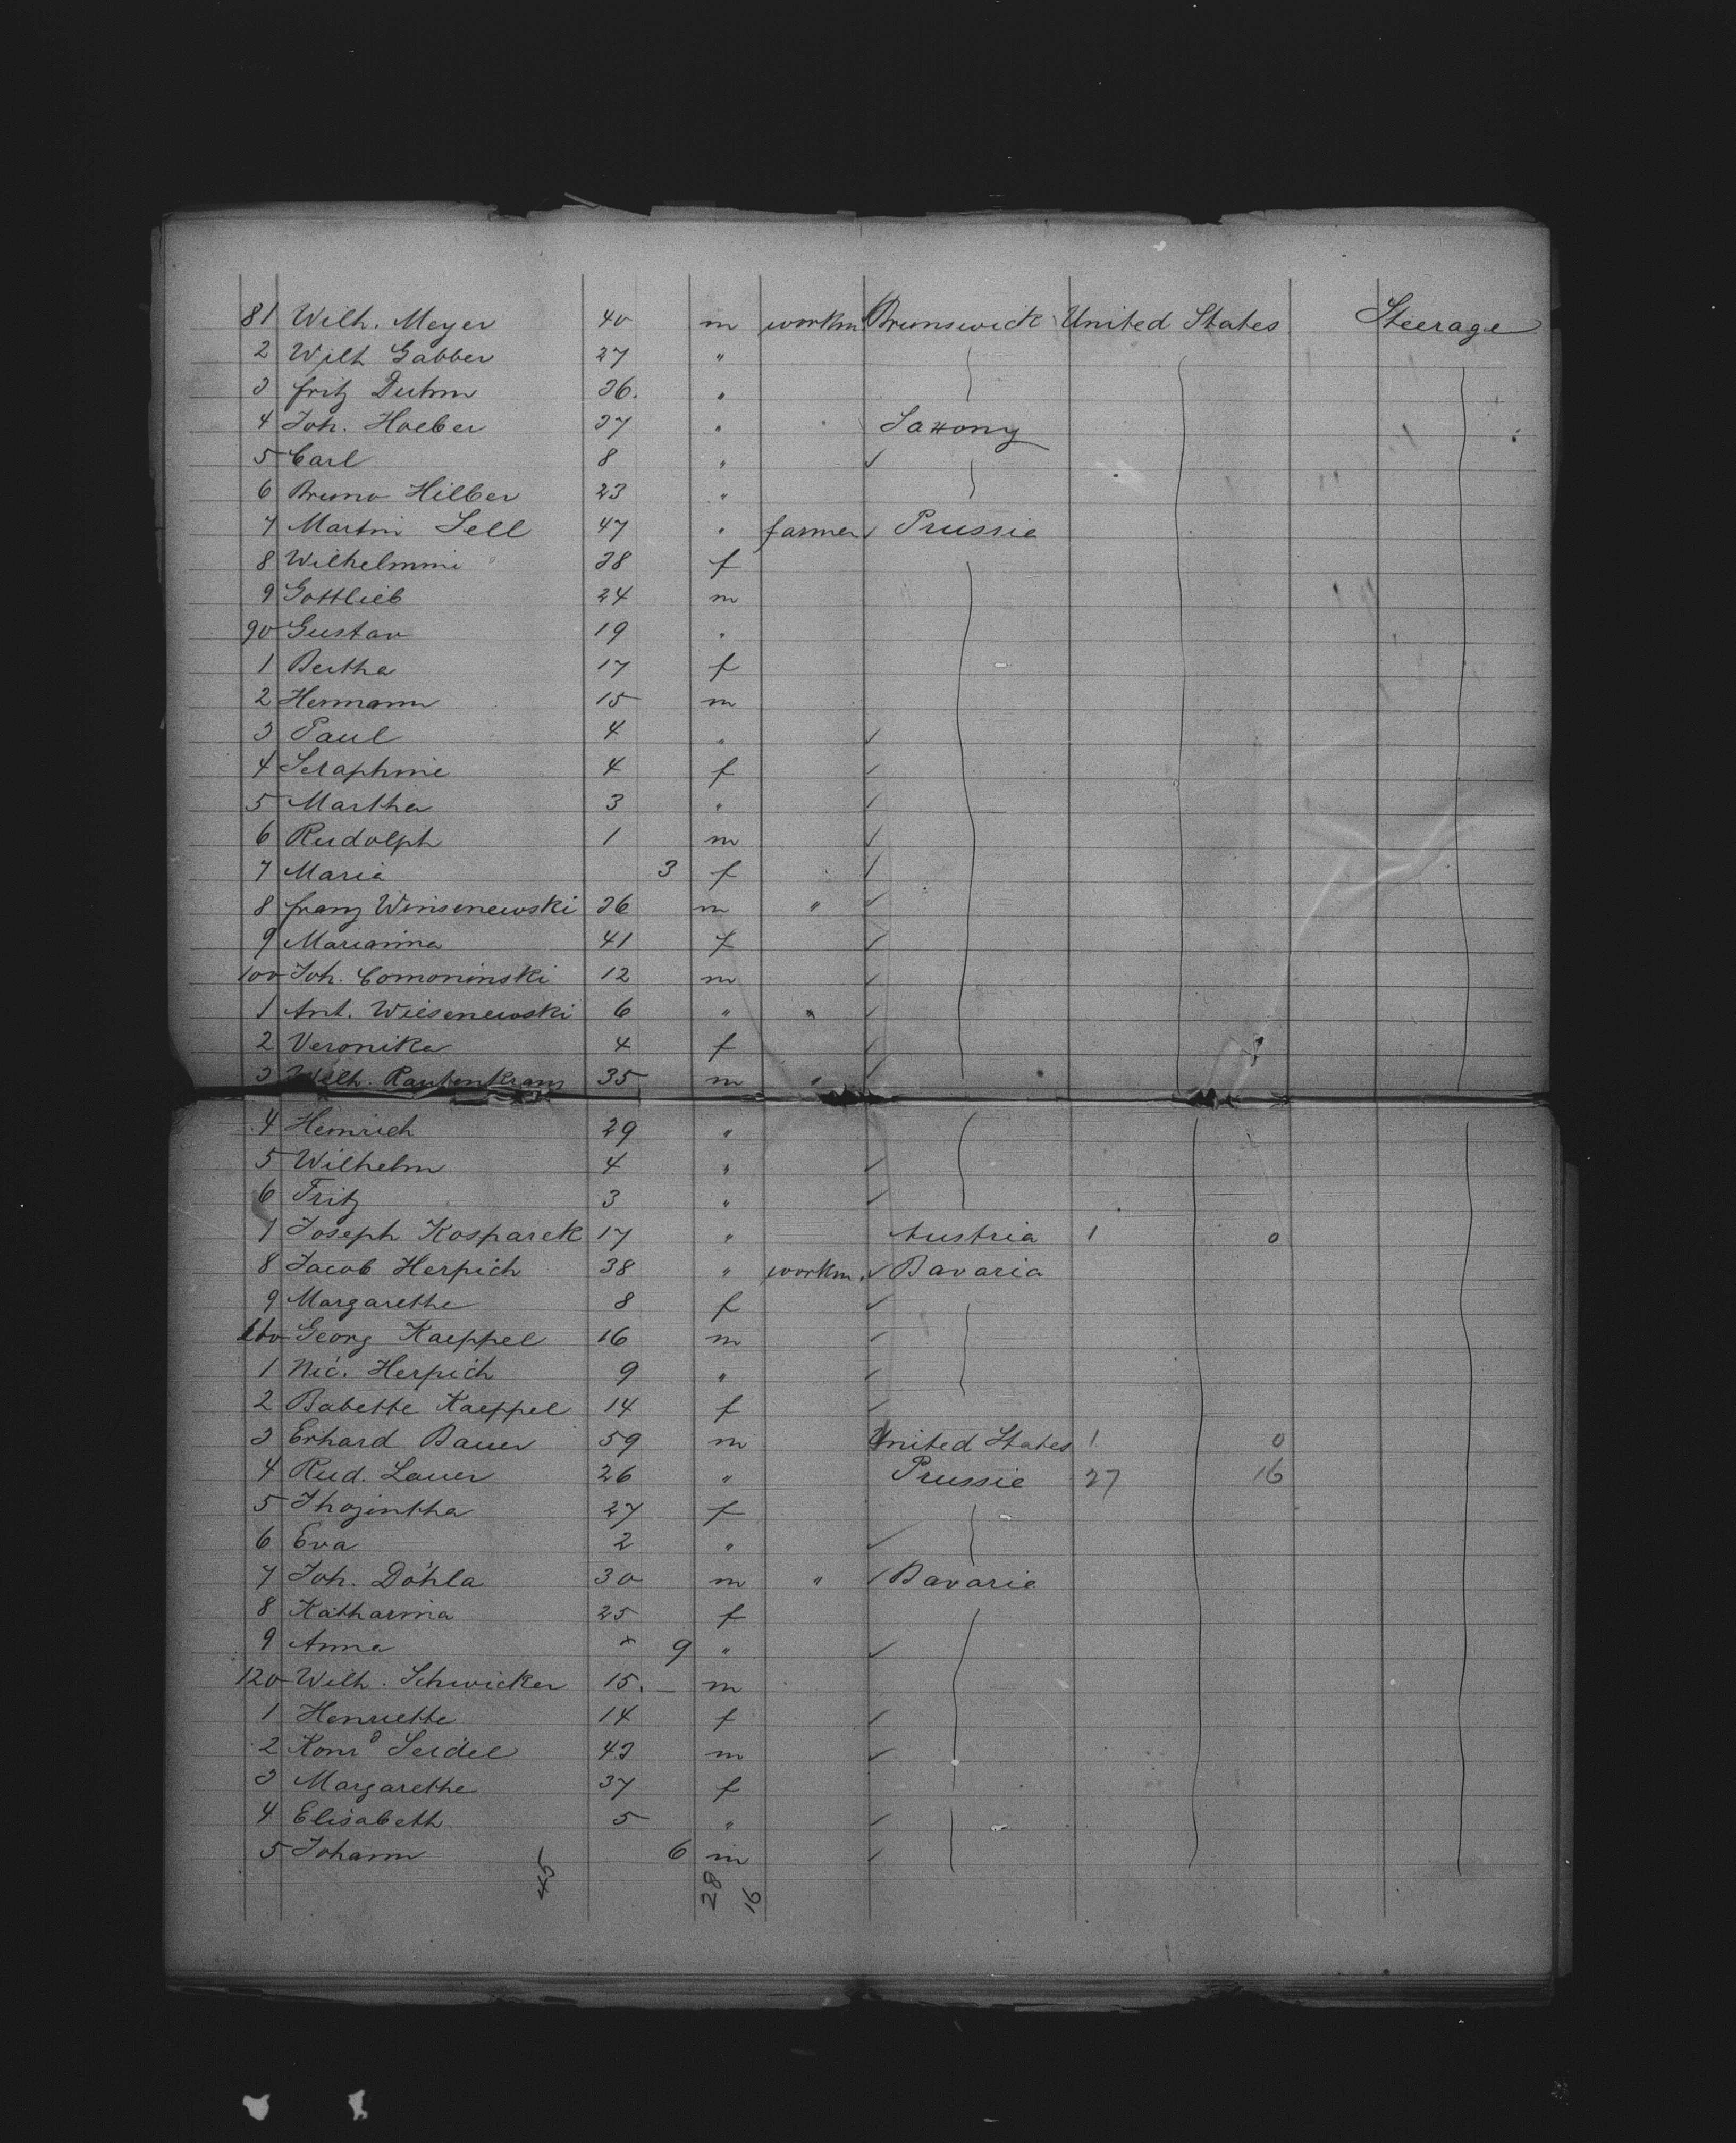 81 Wilh. Meyer 40 m workm Brunswick United States Steerage
2 Wilh Gabber 27 "
3 Fritz Duhm 36. "
4 Joh. Hoeber 37 " Saxony
5 Carl 8 " ✓
6 Bruno Hilber 23 "
7 Martin Sell 47 " farmer ✓ Prussia
8 Wilhelmine 38 f
9 Gottlieb 24 m
90 Gustav 19 "
1 Bertha 17 f
2 Hermann 15 m
3 Paul 4 " ✓
4 Seraphine 4 f ✓
5 Martha 3 " ✓
6 Rudolph 1 m ✓
7 Maria 3 f ✓
8 Franz Winsenewski 36 m " ✓
9 Marianna 41 f ✓
100 Joh. Comoninski 12 m ✓
1 Ant. Wiesenewski 6 " " ✓
2 Veronika 4 f ✓
3 Wilh. Rautenkranz 35 m " ✓
4 Heinrich 29 "
5 Wilhelm 4 " ✓
6 Fritz 3 " ✓
7 Joseph Kosparek 17 " Austria 1 0
8 Jacob Herpich 38 " workm. ✓ Bavaria
9 Margarethe 8 f ✓
110 Georg Kaeppel 16 m ✓
1 Nic. Herpich 9 " ✓
2 Babette Kaeppel 14 f ✓
3 Erhard Bauer 59 m United States 1 0
4 Rud. Lauer 26 " Prussia 27 16
5 27 f
6 Eva 2 " ✓
7 Joh. Döhla 30 m " ✓ Bavaria
8 Katharina 25 f
9 Anna 9 " ✓
120 Wilh. Schwicker 15. m
1 Henriette 14 f ✓
2 Konrd Seidel 43 m ✓
3 Margarethe 37 f
4 Elisabeth 5 " ✓
5 Johann 6 m ✓
45 28 16